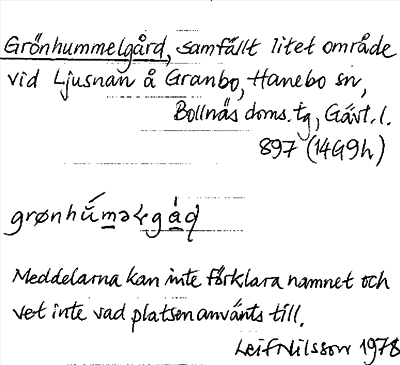 Grönhummelgård, samfällt litet område
vid Ljusnan å Granbo, Hanebo sn,
Bollnäs doms. tg, Gävl. l.
897 (14G9h)
Meddelarna kan inte förklara namnet och
vet inte vad platsen använts till.
Leif Nilsson 1978